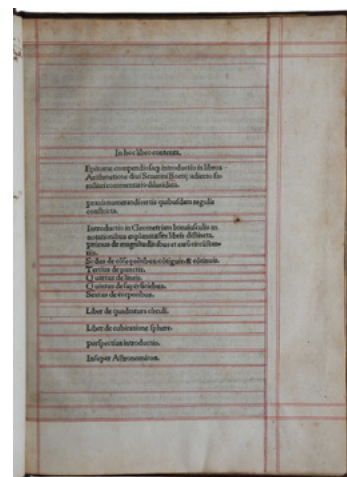 In hoc libro contenta.
Epitome compendiosaq; introductio in libros
Arithmeticos diui Seuerini Boetij: adiecto fa
miliari commentario dilucidata.
praxis numerandi certis quibusdam regulis
constricta.
Introductio in Geometriam
libris distincta.
primus de magnitudinibus et earum
Secundus de cōtiguis & cōtinuis.
Tertius de punctis.
Quartus de lineis.
Quintus de superficiebus.
Sextus de corporibus.
Liber de quadratura circuli.
Liber de cubicatione sphere.
perspectiua introductio.
Insuper Astronomicon.